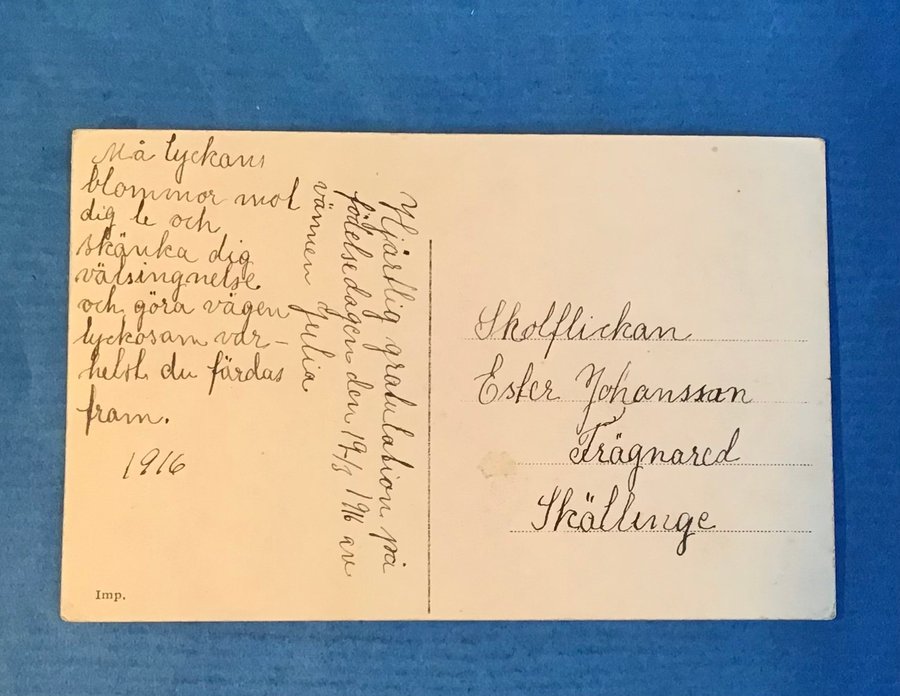 Må lyckans
blommor mot
dig le och
skänka dig
välsingnelse
och göra vägen
lyckosam var-
helst du färdas
fram.
1916
Hjärtlig gratulation på
födelsedagen den 19/8 1916 av
vännen Julia
Skolflickan
Ester Johansson
Frägnared
Skällinge
Imp.